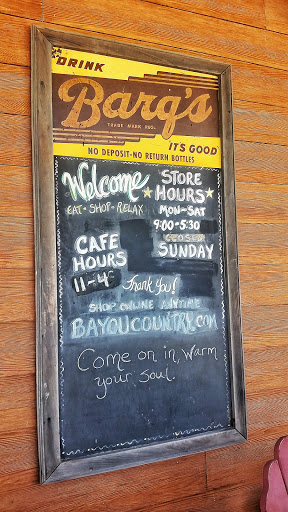 DRINK
Barq's
TRADE MARK REG.
IT'S GOOD
NO DEPOSIT-NO RETURN BOTTLES
Welcome
EAT-SHOP-RELAX
STORE
HOURS
MON-SAT
9:00-5:30
CLOSED
SUNDAY
CAFE
HOURS
11-4
Thank you!
SHOP ONLINE ANYTIME
BAYOUCOUNTRY.COM
Come on in, warm
your soul.